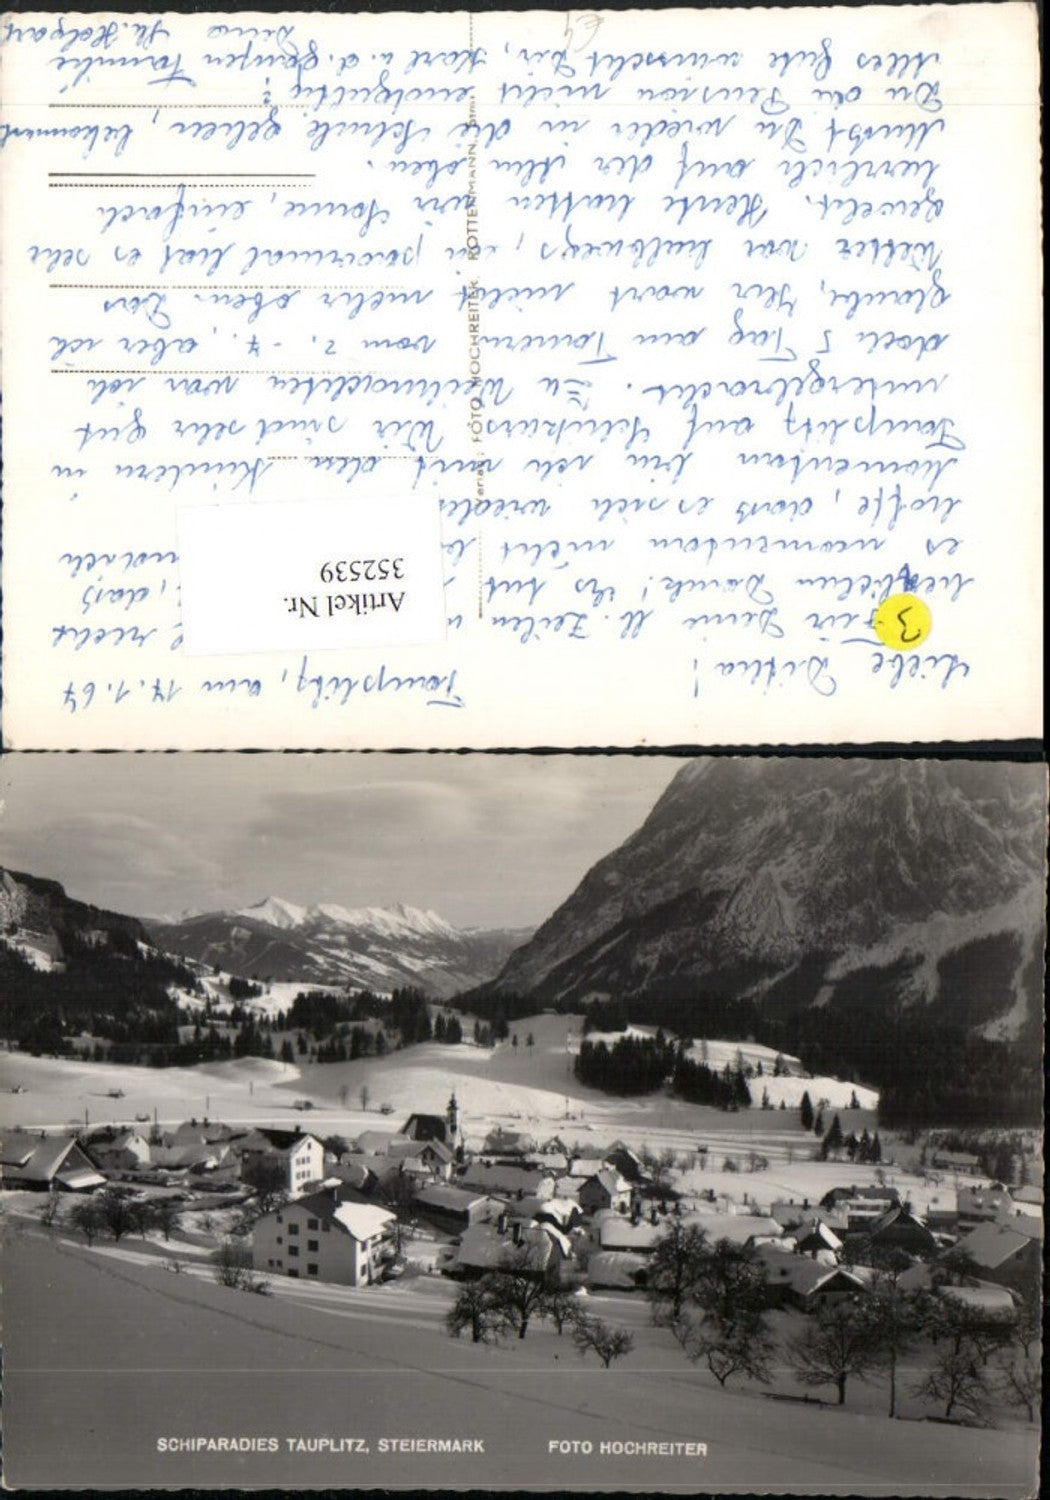 Tauplitz, am 14.1.64
Liebe Ditha!
Für Deine lb. Zeilen recht
herzlichen Dank! Es tut , daß
es momentan nicht
hoffe, daß es sich wieder
Momentan bin ich mit den Kindern in
Tauplitz auf Schikurs. Wir sind sehr gut
untergebracht. Zu Weihnachten war ich
doch 5 Tag am Tauern vom 2. - 7., aber ich
glaube, Ihr wart nicht mehr oben. Das
Wetter war halbwegs, ein paarmal hat es sehr
geweht. Heute hatten wir Sonne, einfach
herrlich auf der Alm oben.
Mußt Du wieder in die Schule gehen, bekommst
Du die Pension nicht endgültig?
Alles Gute wünscht Dir, Karl u. d. ganzen Familie
Deine
Verlag: FOTO HOCHREITER, ROTTENMANN,
Artikel Nr.
352539
3
SCHIPARADIES TAUPLITZ, STEIERMARK FOTO HOCHREITER